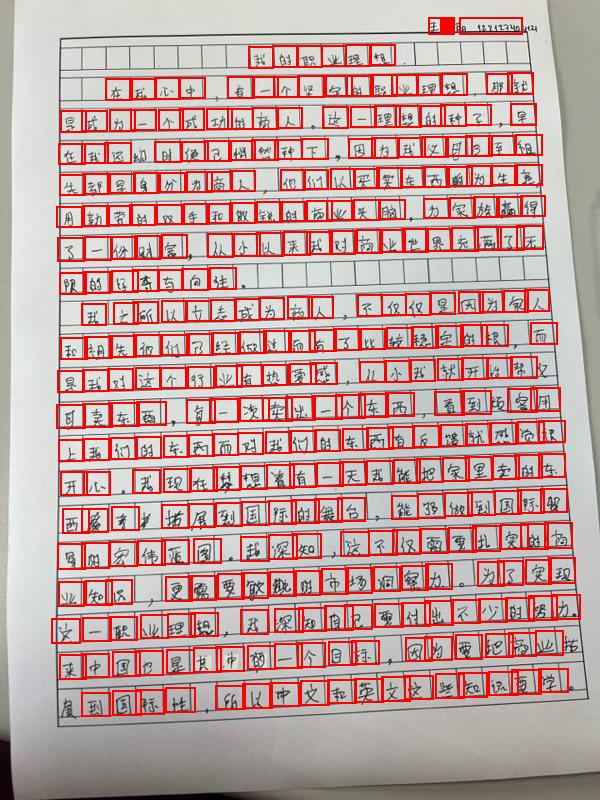 我的职业理想
在我心中，有一个坚定的职业理想，那就
是成为一个成功的商人。这一理想的种子，早
在我还幼时便已悄然种下，因为我父母与车组
先都是身分为商人，他们以买卖东西为生意
用勤劳的双手和敏锐的商业头脑，为家族赢得
了一份财富，从小以来我对商业世界充满了无
限的好奇与向往。
我之所以立志成为商人，不仅仅是因为家人
和祖先他们了经做过而有了比较稳定的根，而
是我对这个行业有热爱感，从小我就开始帮父
母卖东西，每一次卖出一个东西，看到顾客用
上我们的东西而对我们的东西有反馈就感觉很
开心。我现在梦想着有一天我能把家里卖的东
西拓展到国际的舞台，能够做到国际贸
易的宏伟蓝图。我深知，这不仅需要扎实的商
业知识，更需要敏锐的市场洞察力。为了实现
这一职业理想，我深知自己要付出不少的努力。
来中国也是其中的一个目标，因为要把商业拓
展到国际性，所以中文和英文这些知识要学。